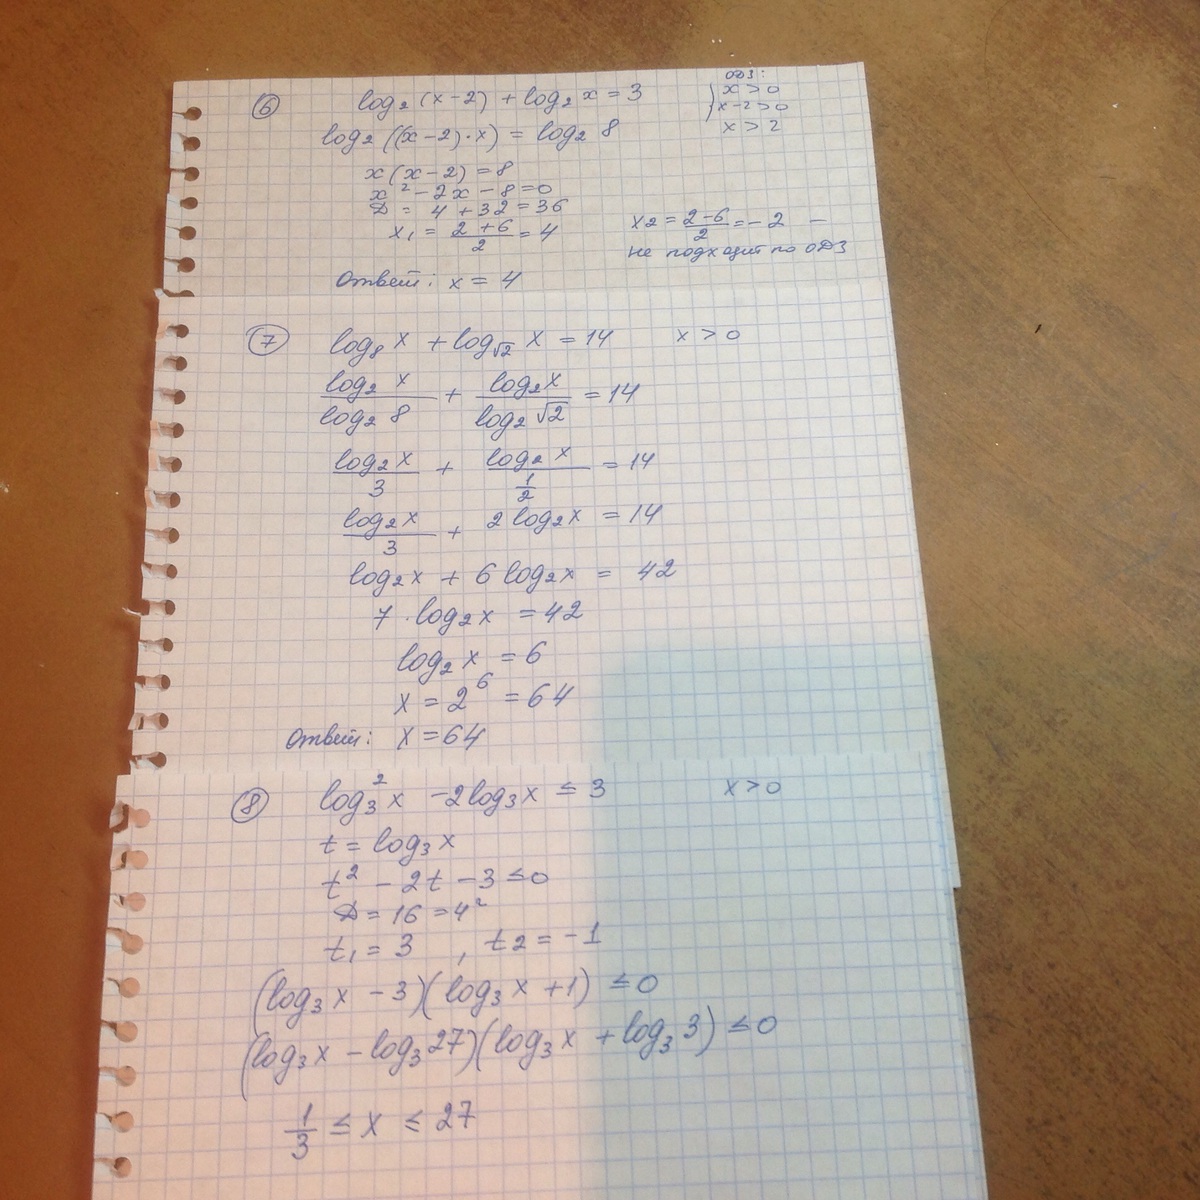 ⑥ log₂(x-2) + log₂x = 3
ОДЗ:
x > 0
x-2 > 0
x > 2
log₂((x-2)·x) = log₂ 8
x(x-2) = 8
x² - 2x - 8 = 0
D = 4 + 32 = 36
x₁ = (2+6)/2 = 4
x₂ = (2-6)/2 = -2 —
не подходит по ОДЗ
Ответ: x = 4
⑦ log₈x + log_√2 x = 14 x > 0
log₂x/log₂8 + log₂x/log₂√2 = 14
log₂x/3 + log₂x/(1/2) = 14
log₂x/3 + 2log₂x = 14
log₂x + 6log₂x = 42
7·log₂x = 42
log₂x = 6
x = 2⁶ = 64
Ответ: x = 64
⑧ log₃²x - 2log₃x ≤ 3 x > 0
t = log₃x
t² - 2t - 3 ≤ 0
D = 16 = 4²
t₁ = 3 , t₂ = -1
(log₃x - 3)(log₃x + 1) ≤ 0
(log₃x - log₃27)(log₃x + log₃3) ≤ 0
1/3 ≤ x ≤ 27